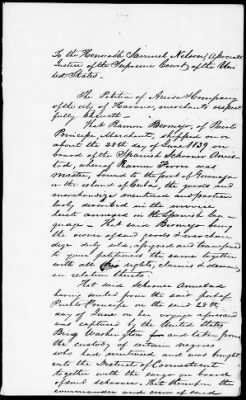 To the Honorable Samuel Nelson, Associate
Justice of the Supreme Court of the Uni
ted States.
The Petition of Aruda & Company
of the city of Havana, merchants respect
fully sheweth —
That Ramon Bermejo, of Puerto
Principe, Merchant, shipped on or
about the 28th day of June 1839 on
board of the Spanish Schooner Amis
tad, whereof Ramon Ferrer was
Master, bound to the port of Guanaja
in the island of Cuba, the goods and
merchandize mentioned and particu
larly described in the invoice
hereto annexed in the Spanish lan
guage — That said Bermejo being
the owner of said goods & merchan
dize duly assigned and transferred
to your petitioners the same together
with all rights, claims & demands
in relation thereto.
That said schooner Amistad
having sailed from the said port of
Puerto Principe on the said 28th
day of June on her voyage aforesaid
was captured by the United States
Brig Washington and taken from
the custody of certain negroes
who had mutinied and was brought
into the District of Connecticut
together with the cargo on board
of said schooner. That thereupon the
commander and crew of said